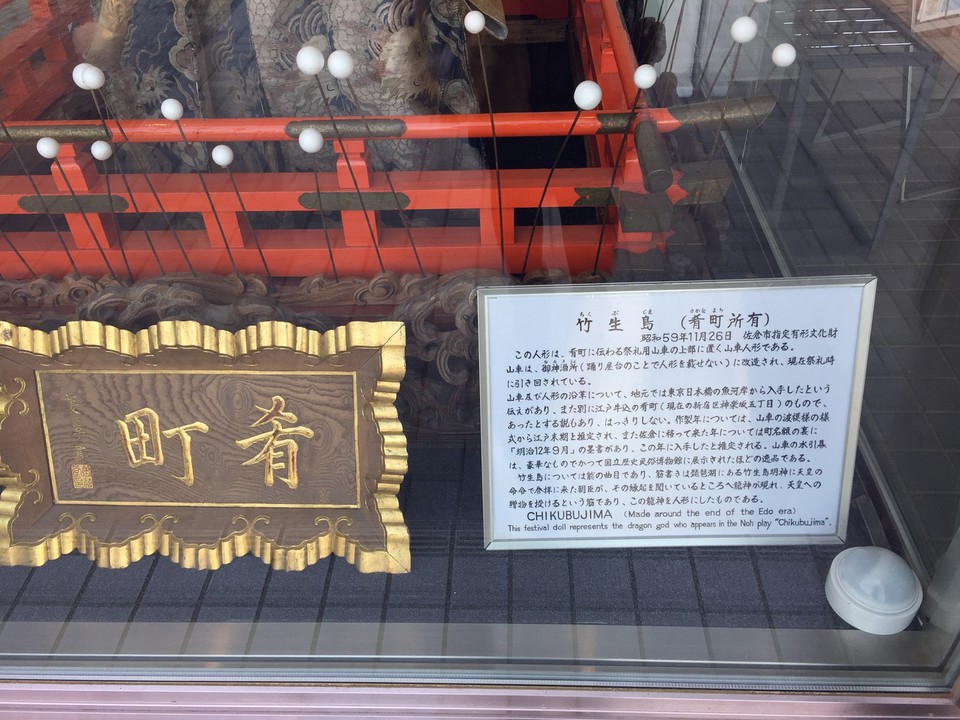 肴町
竹生島 (肴町所有)
ちくぶじま さかなまち
昭和59年11月26日 佐倉市指定有形文化財
この人形は、肴町に伝わる祭礼用山車の上部に置く山車人形である。
山車は、御神酒所(踊り屋台のことで人形を載せない)に改造され、現在祭礼時
に引き回されている。
山車及び人形の沿革について、地元では東京日本橋の魚河岸から入手したという
伝えがあり、また別に江戸牛込の肴町(現在の新宿区神楽坂五丁目)のもので、
あったとする説もあり、はっきりしない。作製年については、山車の波模様の様
式から江戸末期と推定され、また佐倉に移って来た年については町名額の裏に
「明治12年9月」の墨書があり、この年に入手したと推定される。山車の水引幕
は、豪華なものでかつて国立歴史民俗博物館に展示されたほどの逸品である。
竹生島については能の曲目であり、筋書きは琵琶湖にある竹生島明神に天皇の
命令で参拝に来た朝臣が、その縁起を聞いているところへ龍神が現れ、天皇への
贈物を授けるという筋であり、この龍神を人形にしたものである。
CHIKUBUJIMA (Made around the end of the Edo era)
This festival doll represents the dragon god who appears in the Noh play "Chikubujima".